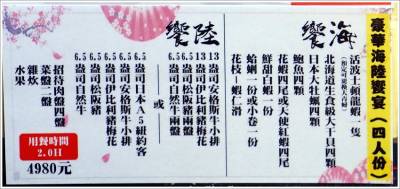 豪華海陸饗宴(四人份)
海饗
活波士頓龍蝦一隻
北海道生食級大干貝四顆
日本大牡蠣四顆
鮑魚四顆
花蝦四尾或天使紅蝦四尾
鮮甜白蝦一份
蛤蜊一份或小卷一份
花枝、蝦仁滑
陸饗
13盎司安格斯牛小排
13盎司伊比利豬梅花
6.5盎司松阪豬兩盤
6.5盎司自然牛兩盤
或
6.5盎司日本A5紐約客
6.5盎司安格斯牛小排
6.5盎司伊比利豬梅花
6.5盎司松阪豬
6.5盎司自然牛
招待肉盤四盤
菜盤二盤
雜炊
水果
用餐時間
2.0H
4980元